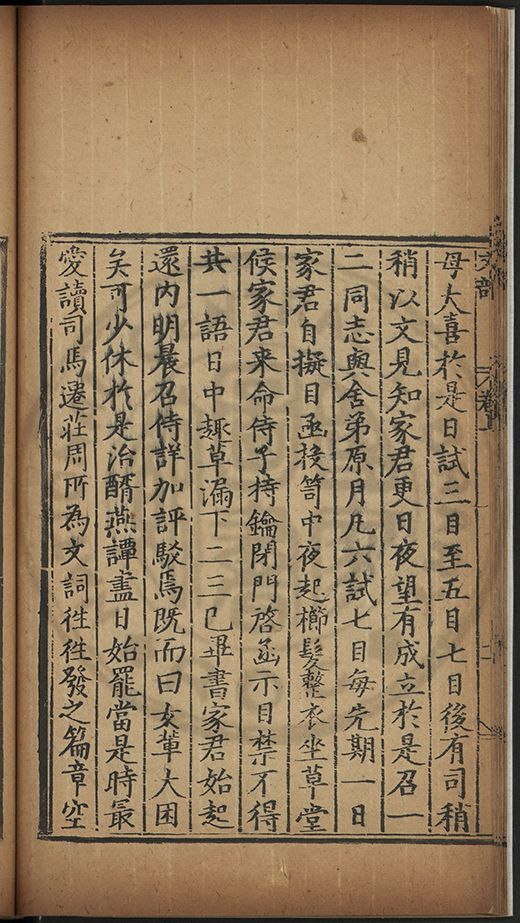 母大喜於是日試三目至五目七目後有司稍
稍以文見知家君更日夜望有成立於是召一
二同志與舍弟原月凡六試七目每先期一日
家君自擬目函投笥中夜起櫛髮整衣坐草堂
候家君来命侍子持鑰閉門啓函示目禁不得
共一語日中趣草漏下二三已畢書家君始起
還内明晨召侍詳加評駁焉既而曰女輩大困
矣可少休於是治醑燕譚盡日始罷當是時最
愛讀司馬遷莊周所為文詞徃徃發之篇章空